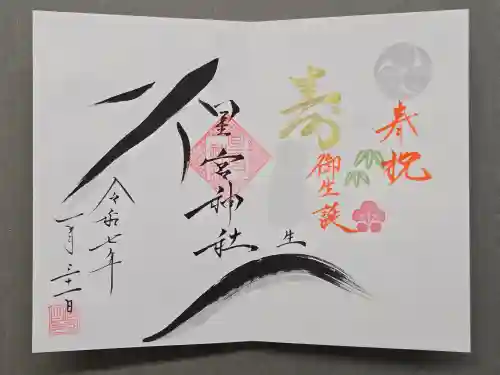 奉祝
御生誕
寿
生
星宮神社
令和七年
一月三十一日